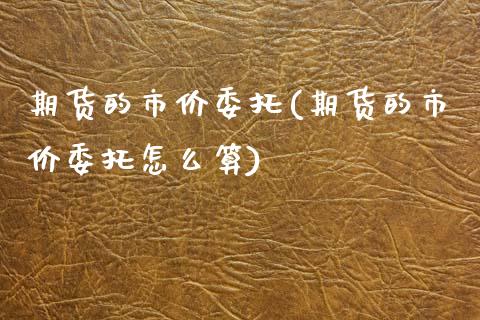 期货的市价委托(期货的市
价委托怎么算)